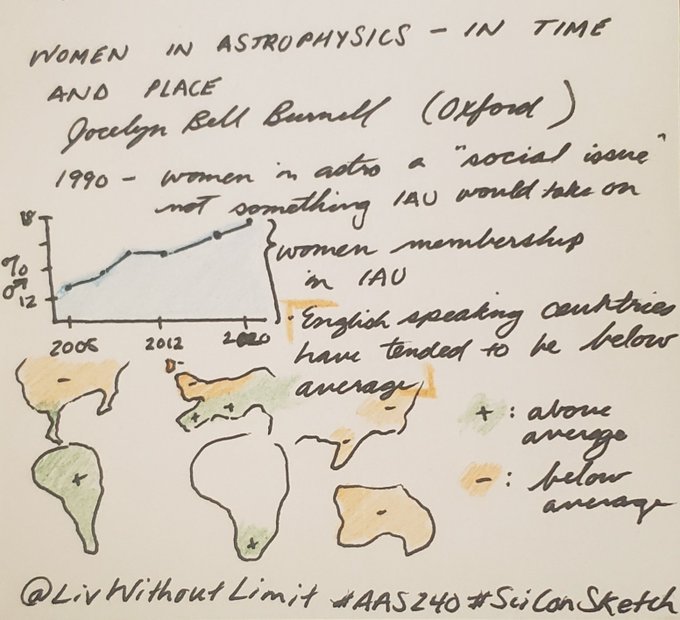 WOMEN IN ASTROPHYSICS - IN TIME
AND PLACE
Jocelyn Bell Burnell (Oxford)
1990 - women in astro a "social issue"
not something IAU would take on
18
%
of
12
2005
2012
2020
women membership
in IAU
· English speaking countries
have tended to be below
average
-
-
-
+
+
+
+
-
-
-
+ : above
average
- : below
average
@LivWithoutLimit #AAS240 #SciConSketch